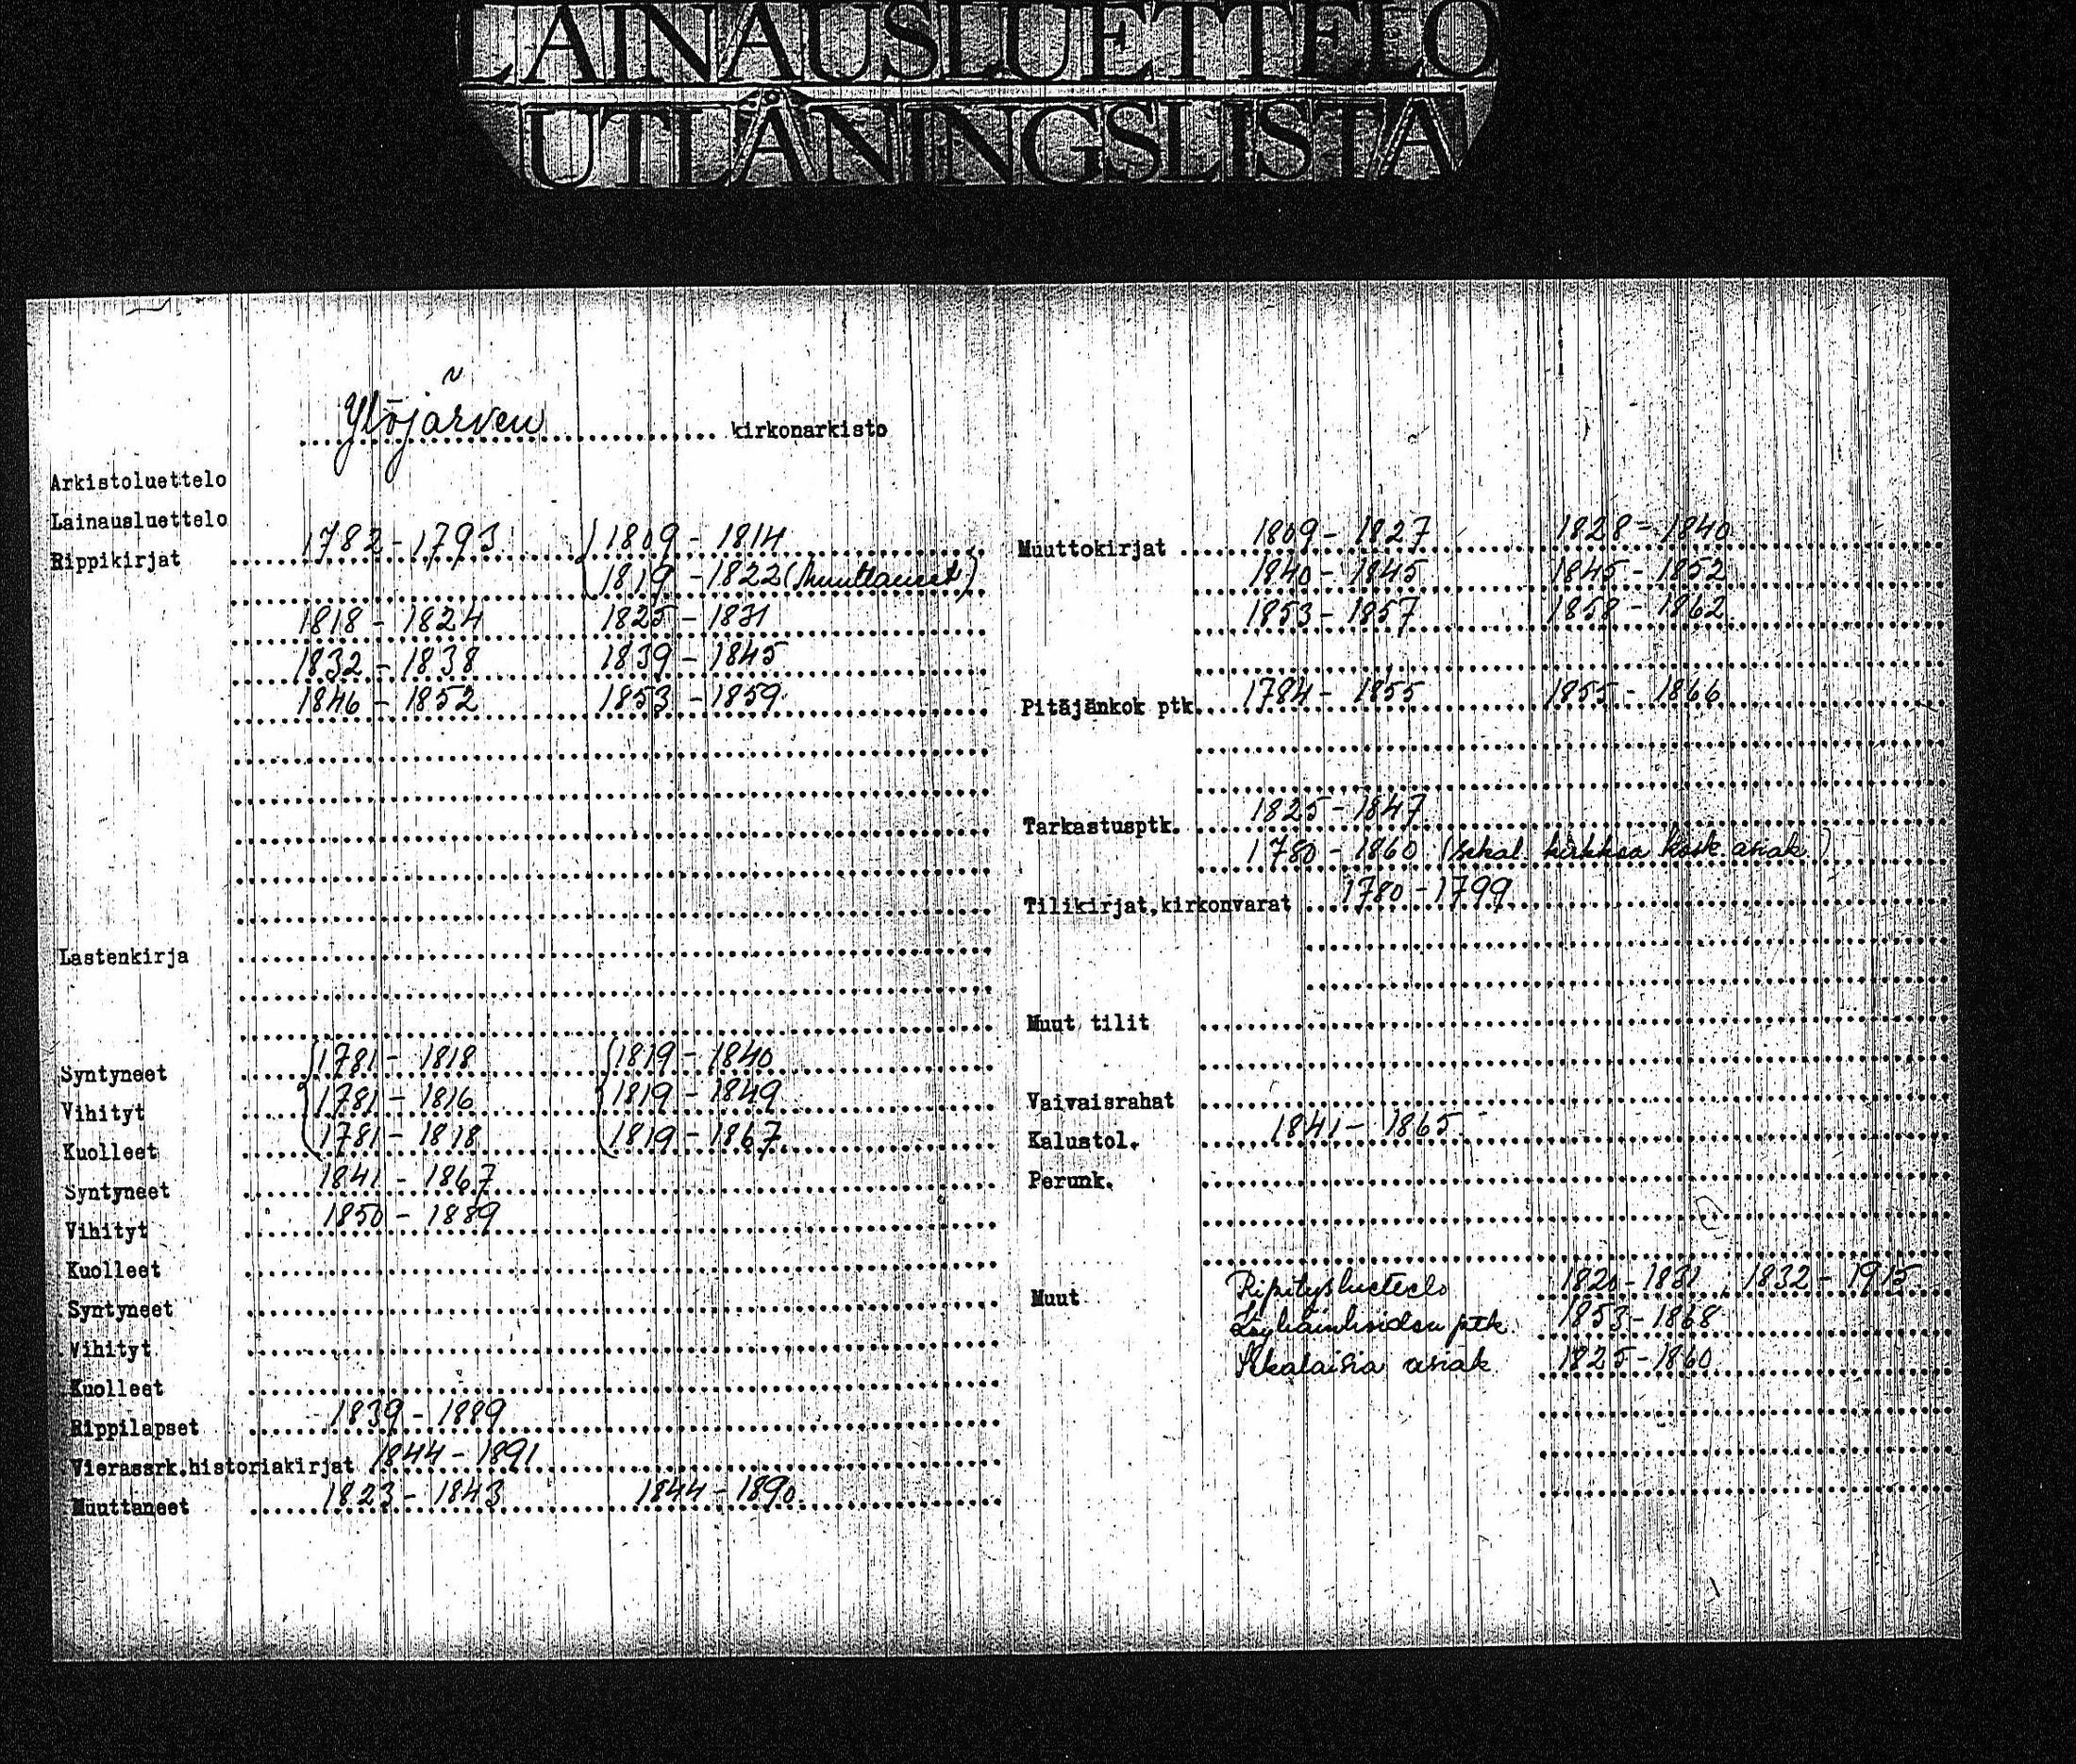 LAINAUSLUETTELO
UTLÅNINGSLISTA
Ylöjärven kirkonarkisto
Arkistoluettelo
Lainausluettelo
Rippikirjat 1782-1793 1809-1814
1819-1822 (Muuttaneet)
1818-1824 1825-1831
1832-1838 1839-1845
1846-1852 1853-1859
Lastenkirja
Syntyneet 1781-1818 1819-1840
Vihityt 1781-1816 1819-1849
Kuolleet 1781-1818 1819-1867
Syntyneet 1841-1867
Vihityt 1850-1889
Kuolleet
Syntyneet
Vihityt
Kuolleet
Rippilapset 1839-1889
Vierassrk.historiakirjat 1844-1891
Muuttaneet 1823-1843 1844-1890
Muuttokirjat 1809-1827 1828-1840
1840-1845 1845-1852
1853-1857 1858-1862
Pitäjänkok ptk. 1784-1855 1855-1866
Tarkastusptk. 1825-1847
1780-1860 (sekal. kirkkoa kosk. asiak.)
Tilikirjat,kirkonvarat 1780-1799
Muut tilit
Vaivaisrahat
Kalustol. 1841-1865
Perunk.
Muut Ripitysluettelo 1820-1831, 1832-1915
Köyhäinhoidon ptk. 1853-1868
Sekalaisia asiak. 1825-1860